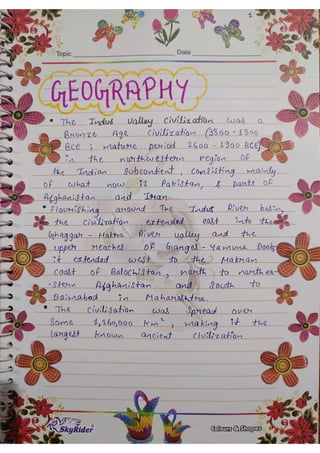 2
Topic Date
GEOGRAPHY
• The Indus Valley Civilization was a
Bronze Age Civilization (3300-1300
BCE ; mature period 2600-1900 BCE)
in the northwestern region of
the Indian Subcontient, consisting mainly
of what now is Pakistan, & parts of
Afghanistan and Iran.
• Flourishing around The Indus River basin,
the civilization extended east into the
Ghaggar-Hakra River valley and the
upper reaches of Ganges-Yamuna Doab;
it extended west to the Makran
coast of Balochistan, north to northea-
-stern Afghanistan and South to
Daimabad in Maharashtra.
• The civilisation was spread over
Some 1,260,000 km², making it the
largest known ancient civilization.
SkyRider Colours & Shapes